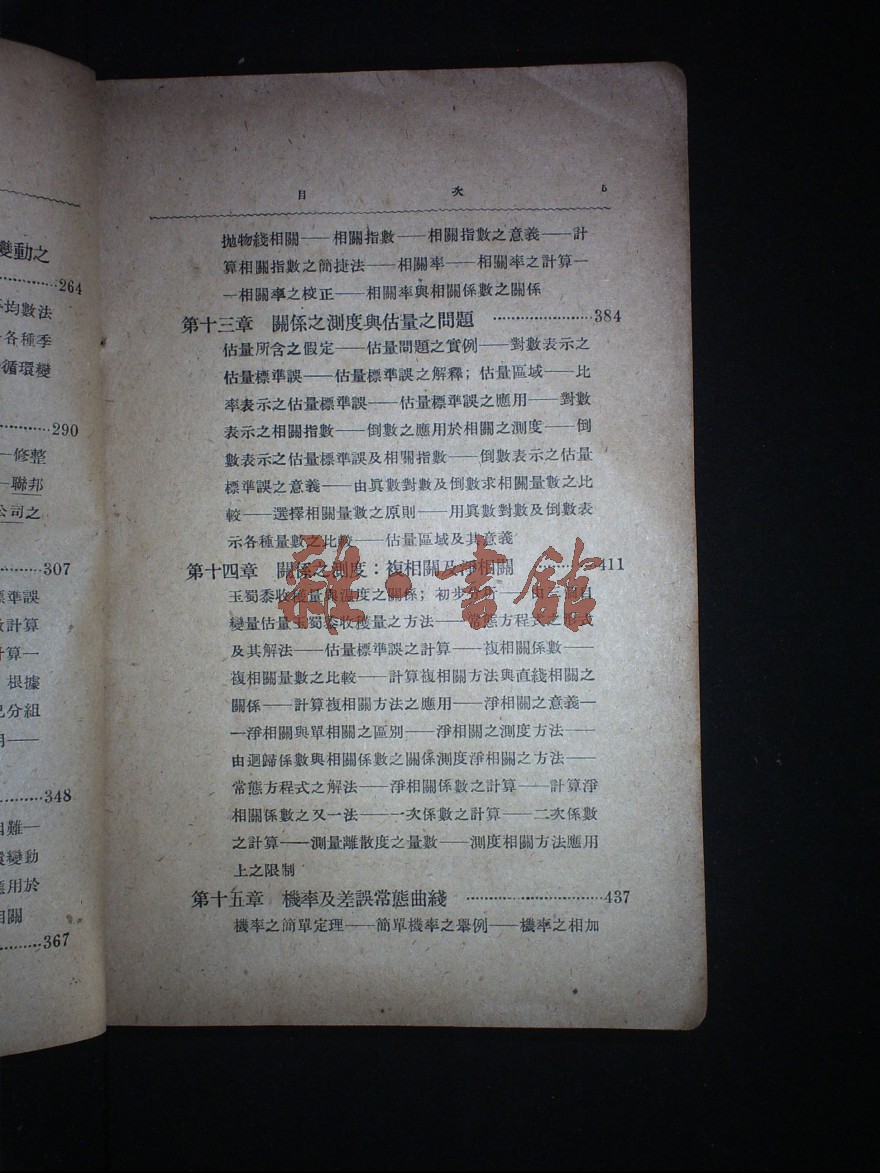 變動之
264
平均數法
各種季
循環變
290
修整
聯邦
公司之
307
標準誤
數計算
計算一
根據
已分組
用——
348
困難—
環變動
應用於
相關
367
目 次 5
拋物綫相關——相關指數——相關指數之意義——計
算相關指數之簡捷法——相關率——相關率之計算—
—相關率之校正——相關率與相關係數之關係
第十三章 關係之測度與估量之問題 ………………384
估量所含之假定——估量問題之實例——對數表示之
估量標準誤——估量標準誤之解釋;估量區域——比
率表示之估量標準誤——估量標準誤之應用——對數
表示之相關指數——倒數之應用於相關之測度——倒
數表示之估量標準誤及相關指數——倒數表示之估量
標準誤之意義——由眞數對數及倒數求相關量數之比
較——選擇相關量數之原則——用眞數對數及倒數表
示各種量數之比較——估量區域及其意義
第十四章 關係之測度:複相關及淨相關 …………411
玉蜀黍收穫量與溫度之關係;初步分析——由三個自
變量估量玉蜀黍收穫量之方法——常態方程式之形式
及其解法——估量標準誤之計算——複相關係數——
複相關量數之比較——計算複相關方法與直綫相關之
關係——計算複相關方法之應用——淨相關之意義—
—淨相關與單相關之區別——淨相關之測度方法——
由迴歸係數與相關係數之關係測度淨相關之方法——
常態方程式之解法——淨相關係數之計算——計算淨
相關係數之又一法——一次係數之計算——二次係數
之計算——測量離散度之量數——測度相關方法應用
上之限制
第十五章 機率及差誤常態曲綫 …………………437
機率之簡單定理——簡單機率之舉例——機率之相加
雜·書館